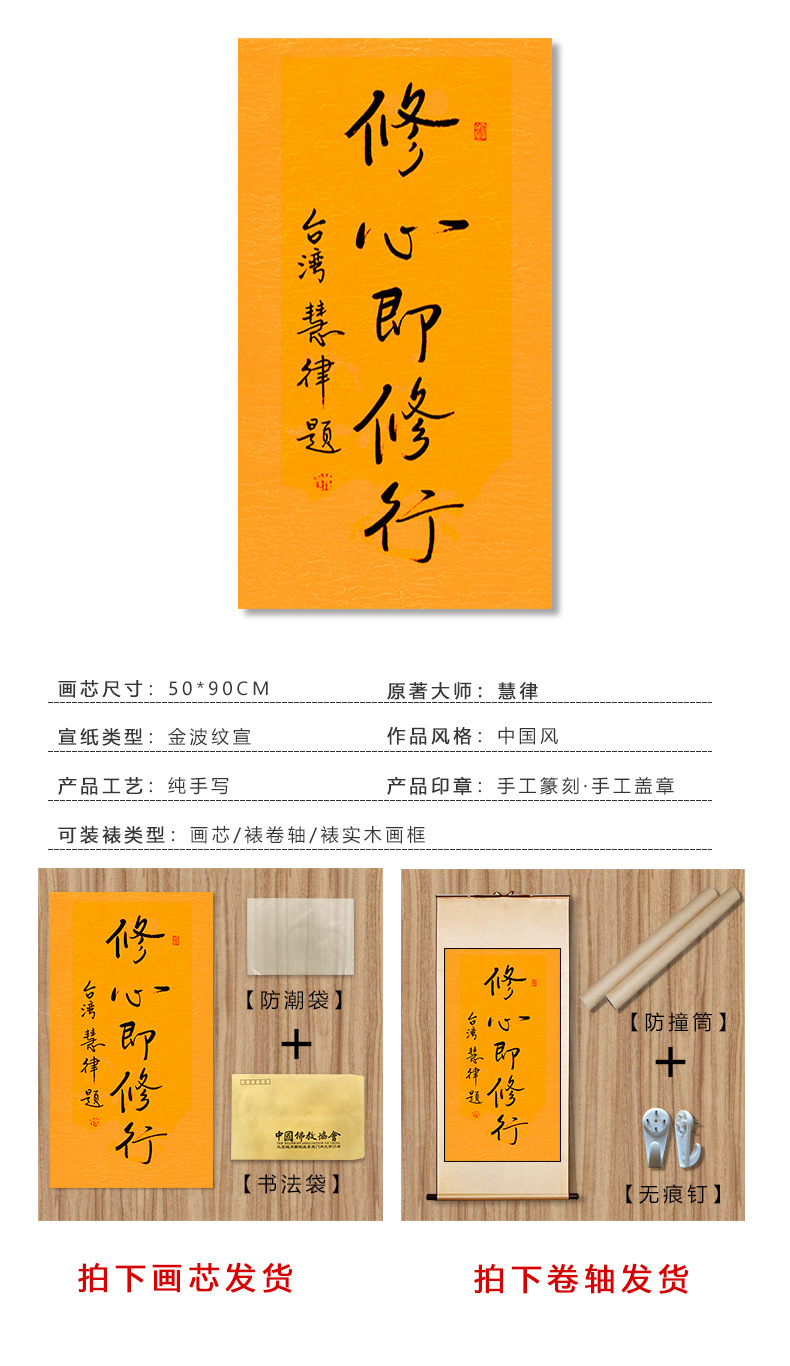 修心即修行
台湾慧律题
画芯尺寸：50*90CM
原著大师：慧律
宣纸类型：金波纹宣
作品风格：中国风
产品工艺：纯手写
产品印章：手工篆刻·手工盖章
可装裱类型：画芯/裱卷轴/裱实木画框
修心即修行
台湾慧律题
【防潮袋】
+
中國佛教協會
THE BUDDHIST ASSOCIATION OF CHINA
【书法袋】
修心即修行
台湾慧律题
【防撞筒】
+
【无痕钉】
拍下画芯发货
拍下卷轴发货